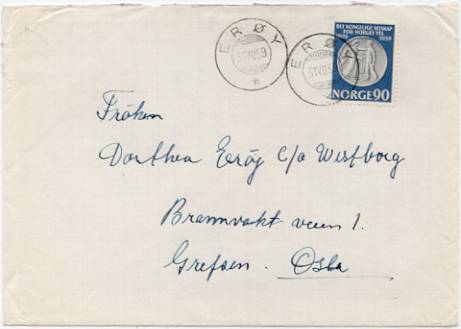 ERØY
ERØY
DET KONGELIGE SELSKAP
FOR NORGES VEL
1809 1959
NORGE 90
Frøken
Dorthea Erøy c/o Westborg
Brannvakt veien 1.
Grefsen. Oslo